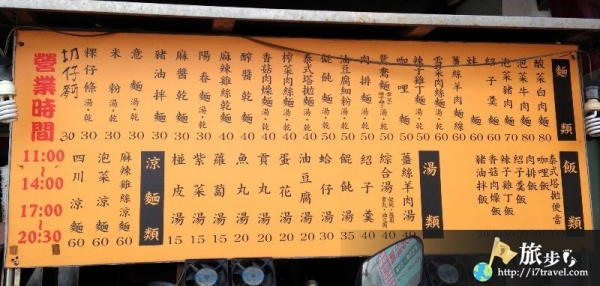 麵類
酸菜白肉麵 80
泡菜牛肉麵 80
泡菜豬肉麵 70
紹子羹麵 60
薑絲羊肉麵線 60
雪菜肉絲麵 湯·乾
辣子雞丁麵 湯·乾
咖哩麵
鴛鴦麵
肉排麵 湯·乾 50
油豆腐細粉 湯·乾 50
餛飩麵 湯·乾 50
泰式塔拋麵 湯·乾
榨菜肉絲麵 湯·乾 40
香菇肉燥麵 湯·乾 40
醡醬乾麵 40
麻辣雞絲乾麵 40
陽春麵 湯·乾 30
麻醬乾麵 30
豬油拌麵 30
意麵 湯·乾 30
米粉 湯·乾 30
粿仔條 湯·乾 30
切仔麵 30
飯類
泰式塔拋便當
咖哩飯
肉排飯
紹子羹飯
辣子雞丁飯
香菇肉燥飯
豬油拌飯
湯類
薑絲羊肉湯 40
綜合湯 40
紹子羹 40
餛飩湯 35
蛤仔湯 30
油豆腐湯 20
蛋花湯 20
貢丸湯 20
魚丸湯 20
蘿蔔湯 20
紫菜湯 15
椪皮湯 15
涼麵類
麻辣雞絲涼麵 60
泡菜涼麵 60
四川涼麵 60
營業時間
11:00
~
14:00
17:00
~
20:30
旅步
http://i7travel.com/